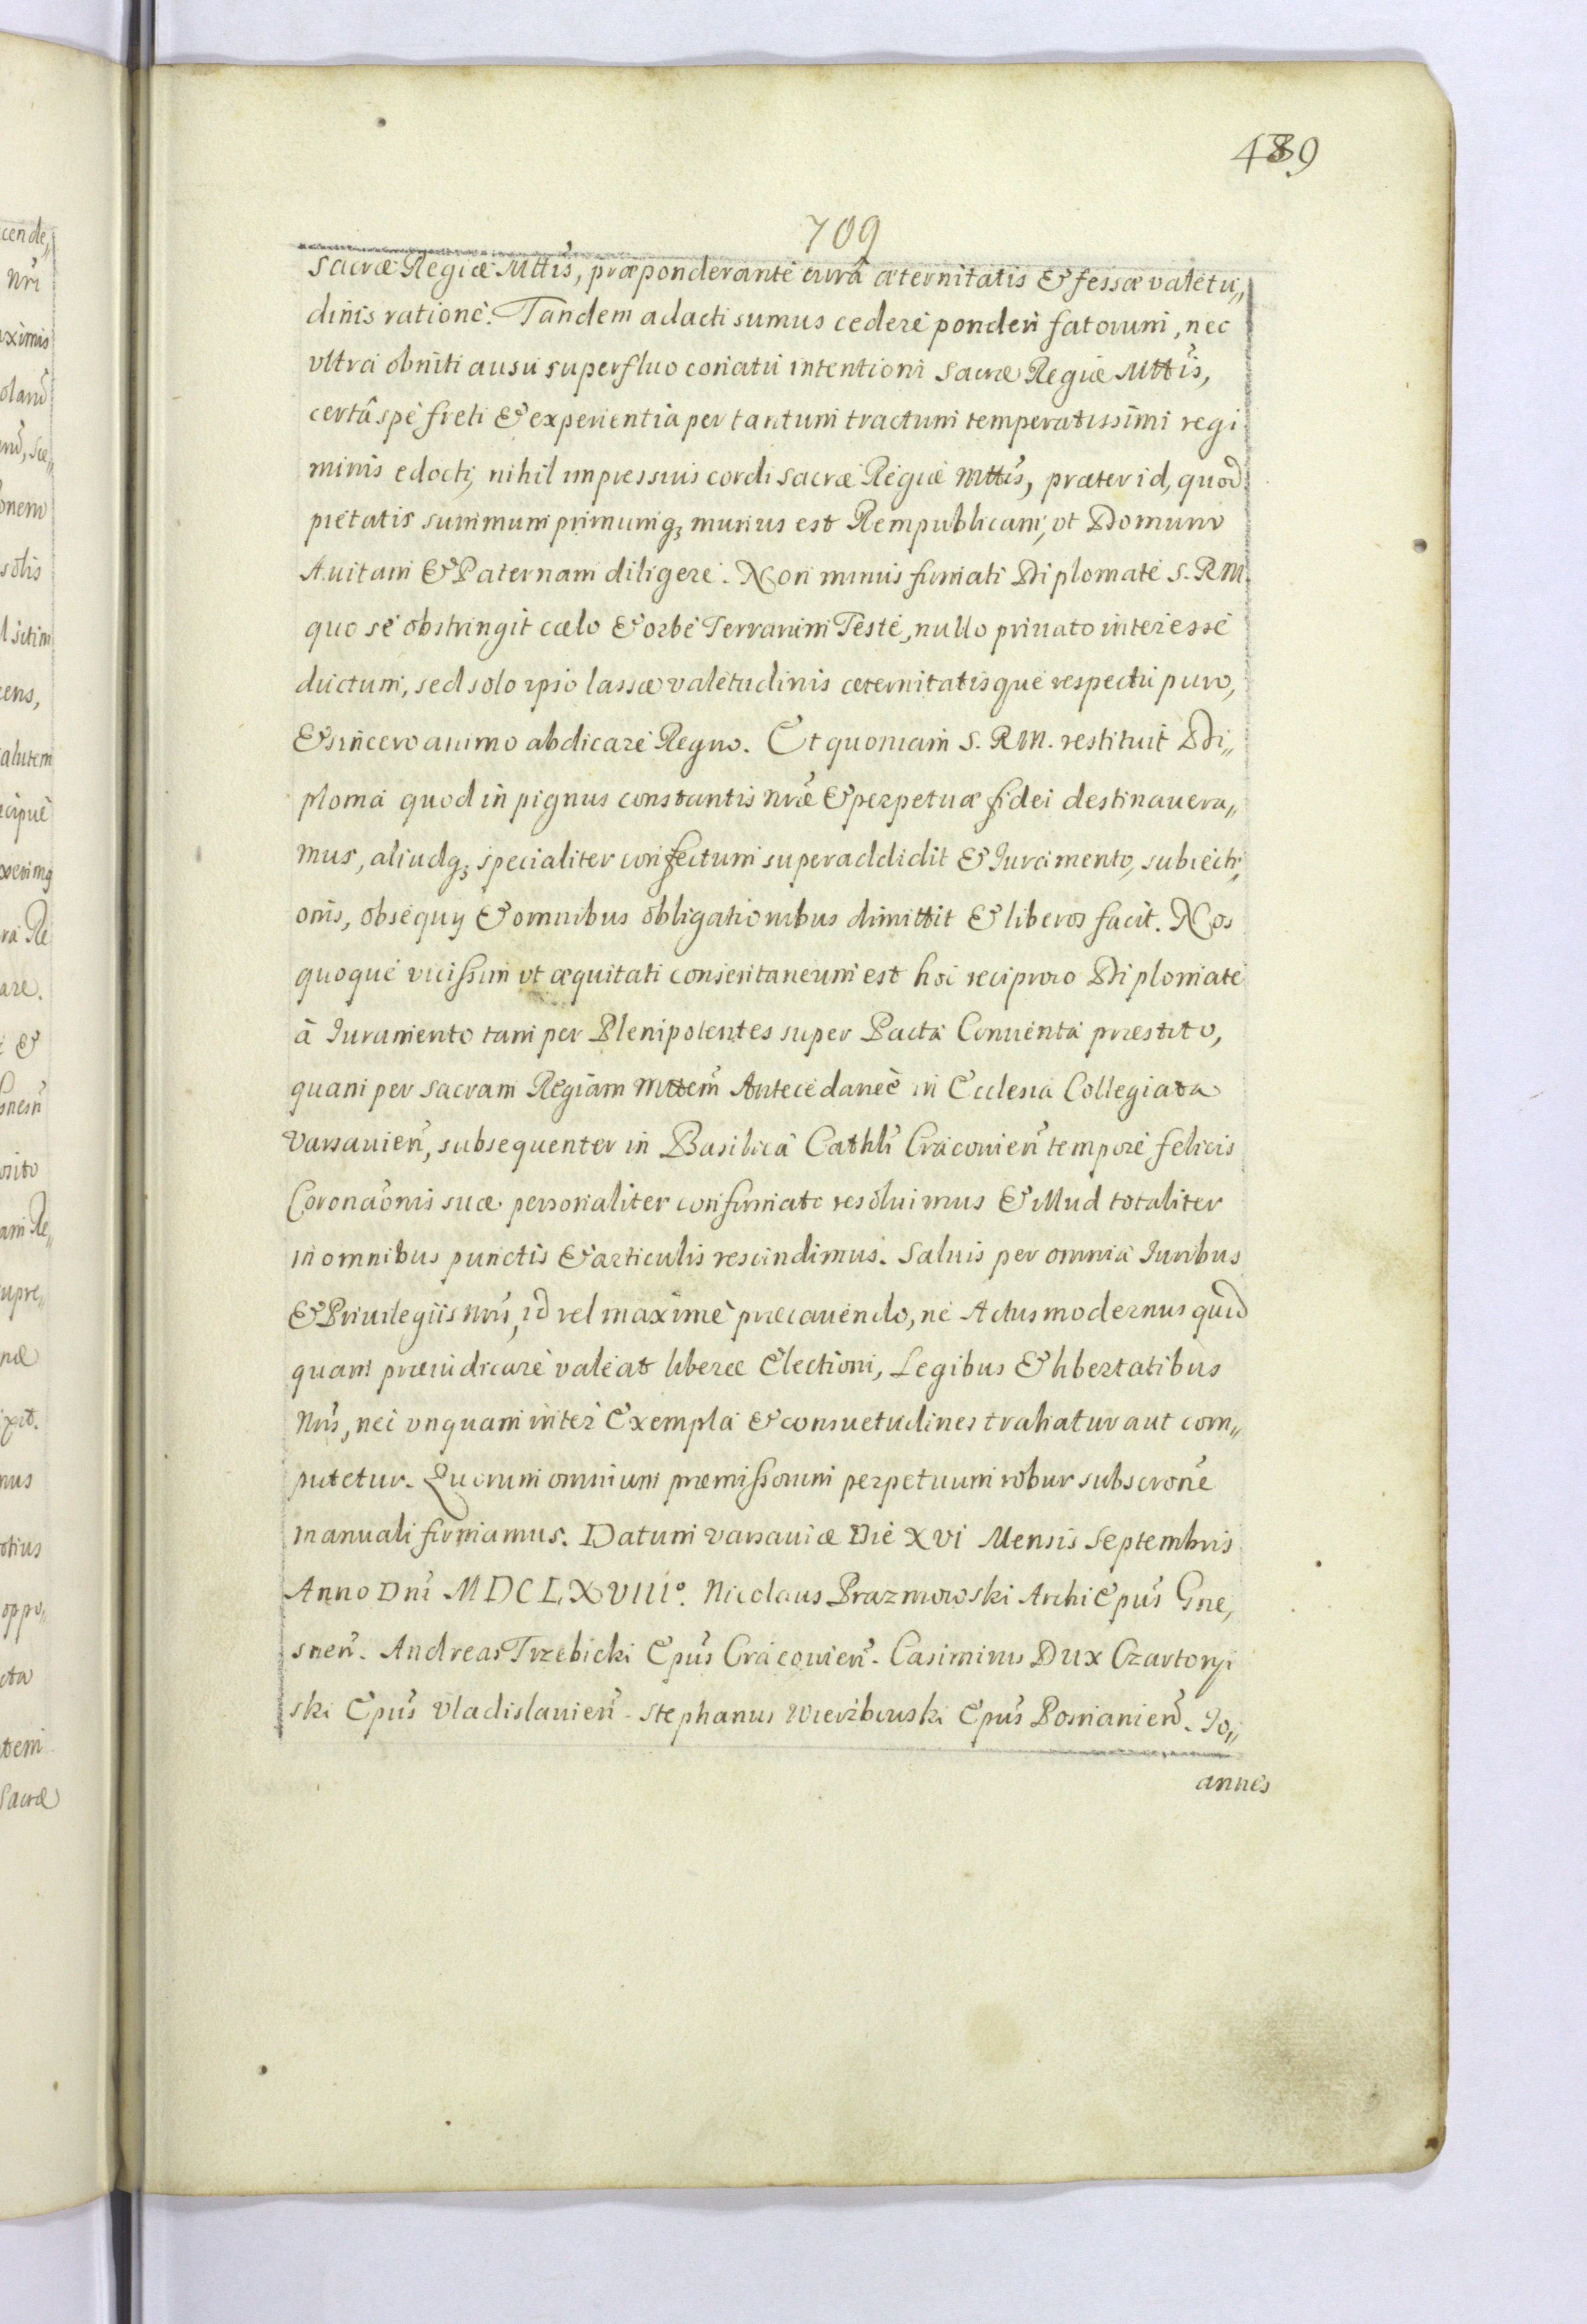 489
709
Sacræ Regiæ Mttis, præponderante cura æternitatis & fessæ valetu„
dinis ratione. Tandem adacti sumus cedere ponderi fatorum, nec
vltra obniti ausu superfluo conatu intentioni Sacræ Regiæ Mttis,
certâ spe freti & experientia per tantum tractum temperatissimi regi
minis edocti, nihil impressius cordi Sacræ Regiæ Mttis, præter id, quod
pietatis summum primumq; munus est Rempublicam, vt Domum
Auitam & Paternam diligere. Non minus firmati Diplomate S. RM.
quo se obstringit cælo & orbe Terrarum Teste, nullo priuato interesse
ductum, sed solo ipso lassæ valetudinis æternitatisque respectu puro,
& sincero animo abdicare Regno. Et quoniam S. RM. restituit Di„
ploma quod in pignus constantis nræ & perpetuæ fidei destinauera„
mus, aliudq; specialiter confectum superaddidit & Iuramento, subiecti„
onis, obsequij & omnibus obligationibus dimittit & liberos facit. Nos
quoque vicissim vt æquitati consentaneum est hoc reciproco Diplomate
à Iuramento tam per Plenipotentes super Pacta Conuenta præstito,
quam per Sacram Regiam Mttem Antecedaneè in Ecclesia Collegiata
Varsauien, subsequenter in Basilicâ Cathli Cracouien tempore felicis
Coronaonis suæ personaliter confirmato resoluimus & illud totaliter
in omnibus punctis & articulis rescindimus. Saluis per omnia Iuribus
& Priuilegiis nris, id vel maximè præcauendo, ne Actus modernus quid
quam præiudicare valeat liberæ Electioni, Legibus & libertatibus
nris, nec vnquam inter Exempla & consuetudines trahatur aut com„
putetur. Quorum omnium præmissorum perpetuum robur subscrone
manuali firmamus. Datum Varsauiæ Die XVI Mensis Septembris
Anno Dni MDCLXVIIIo. Nicolaus Prazmowski ArchiEpus Gne„
snen. Andreas Trzebicki Epus Cracouien. Casimirus Dux Czartoryi
ski Epus Vladislauien. Stephanus Wierzbowski Epus Posnanien. Io„
annes